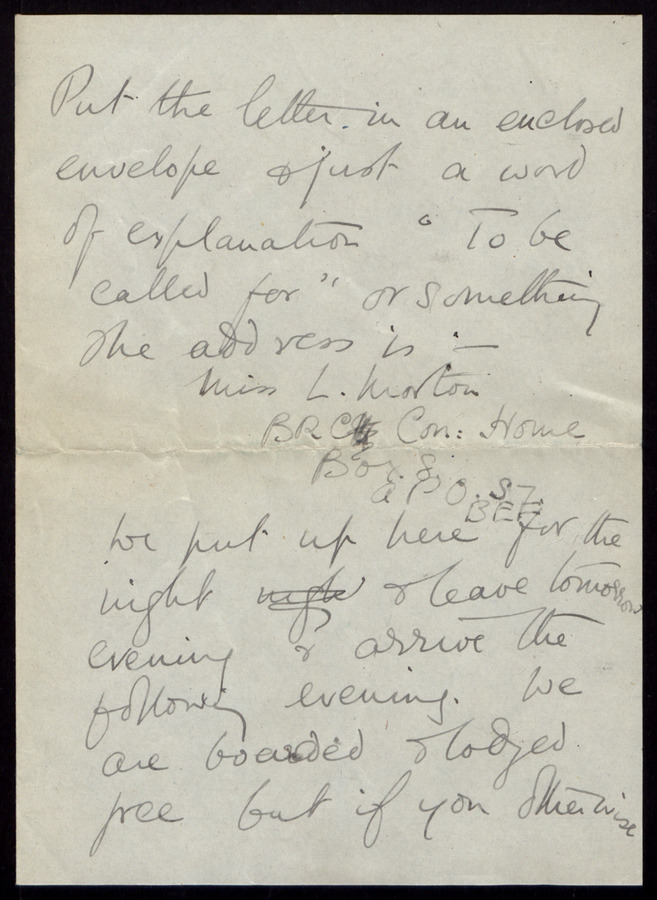 Put the letter in an enclosed
envelope & just a word
of explanation "To be
called for" or something
The address is :—
Miss L. Morton
BRCS Con: Home
Box 8.
A P O. S7.
BEF
We put up here for the
night night & leave tomorrow
evening & arrive the
following evening. We
are boarded & lodged
free but if you otherwise